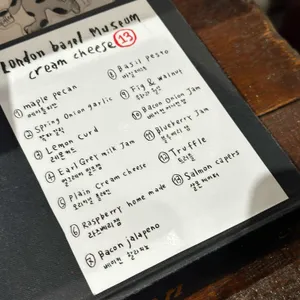 London bagel Museum
cream cheese 13
① maple pecan
메이플피칸
② Spring Onion garlic
③ Lemon curd
레몬커드
④ Earl Grey milk Jam
얼그레이 밀크잼
⑤ plain Cream cheese
플레인 크림치즈
⑥ Raspberry home made
라즈베리잼
⑦ Bacon jalapeno
베이컨 할라피뇨
⑧ Basil pesto
바질페스토
⑨ Fig & Walnut
⑩ Bacon Onion Jam
베이컨 어니언잼
⑪ Blueberry Jam
블루베리잼
⑫ Truffle
트러플
Salmon capers
연어 케이퍼